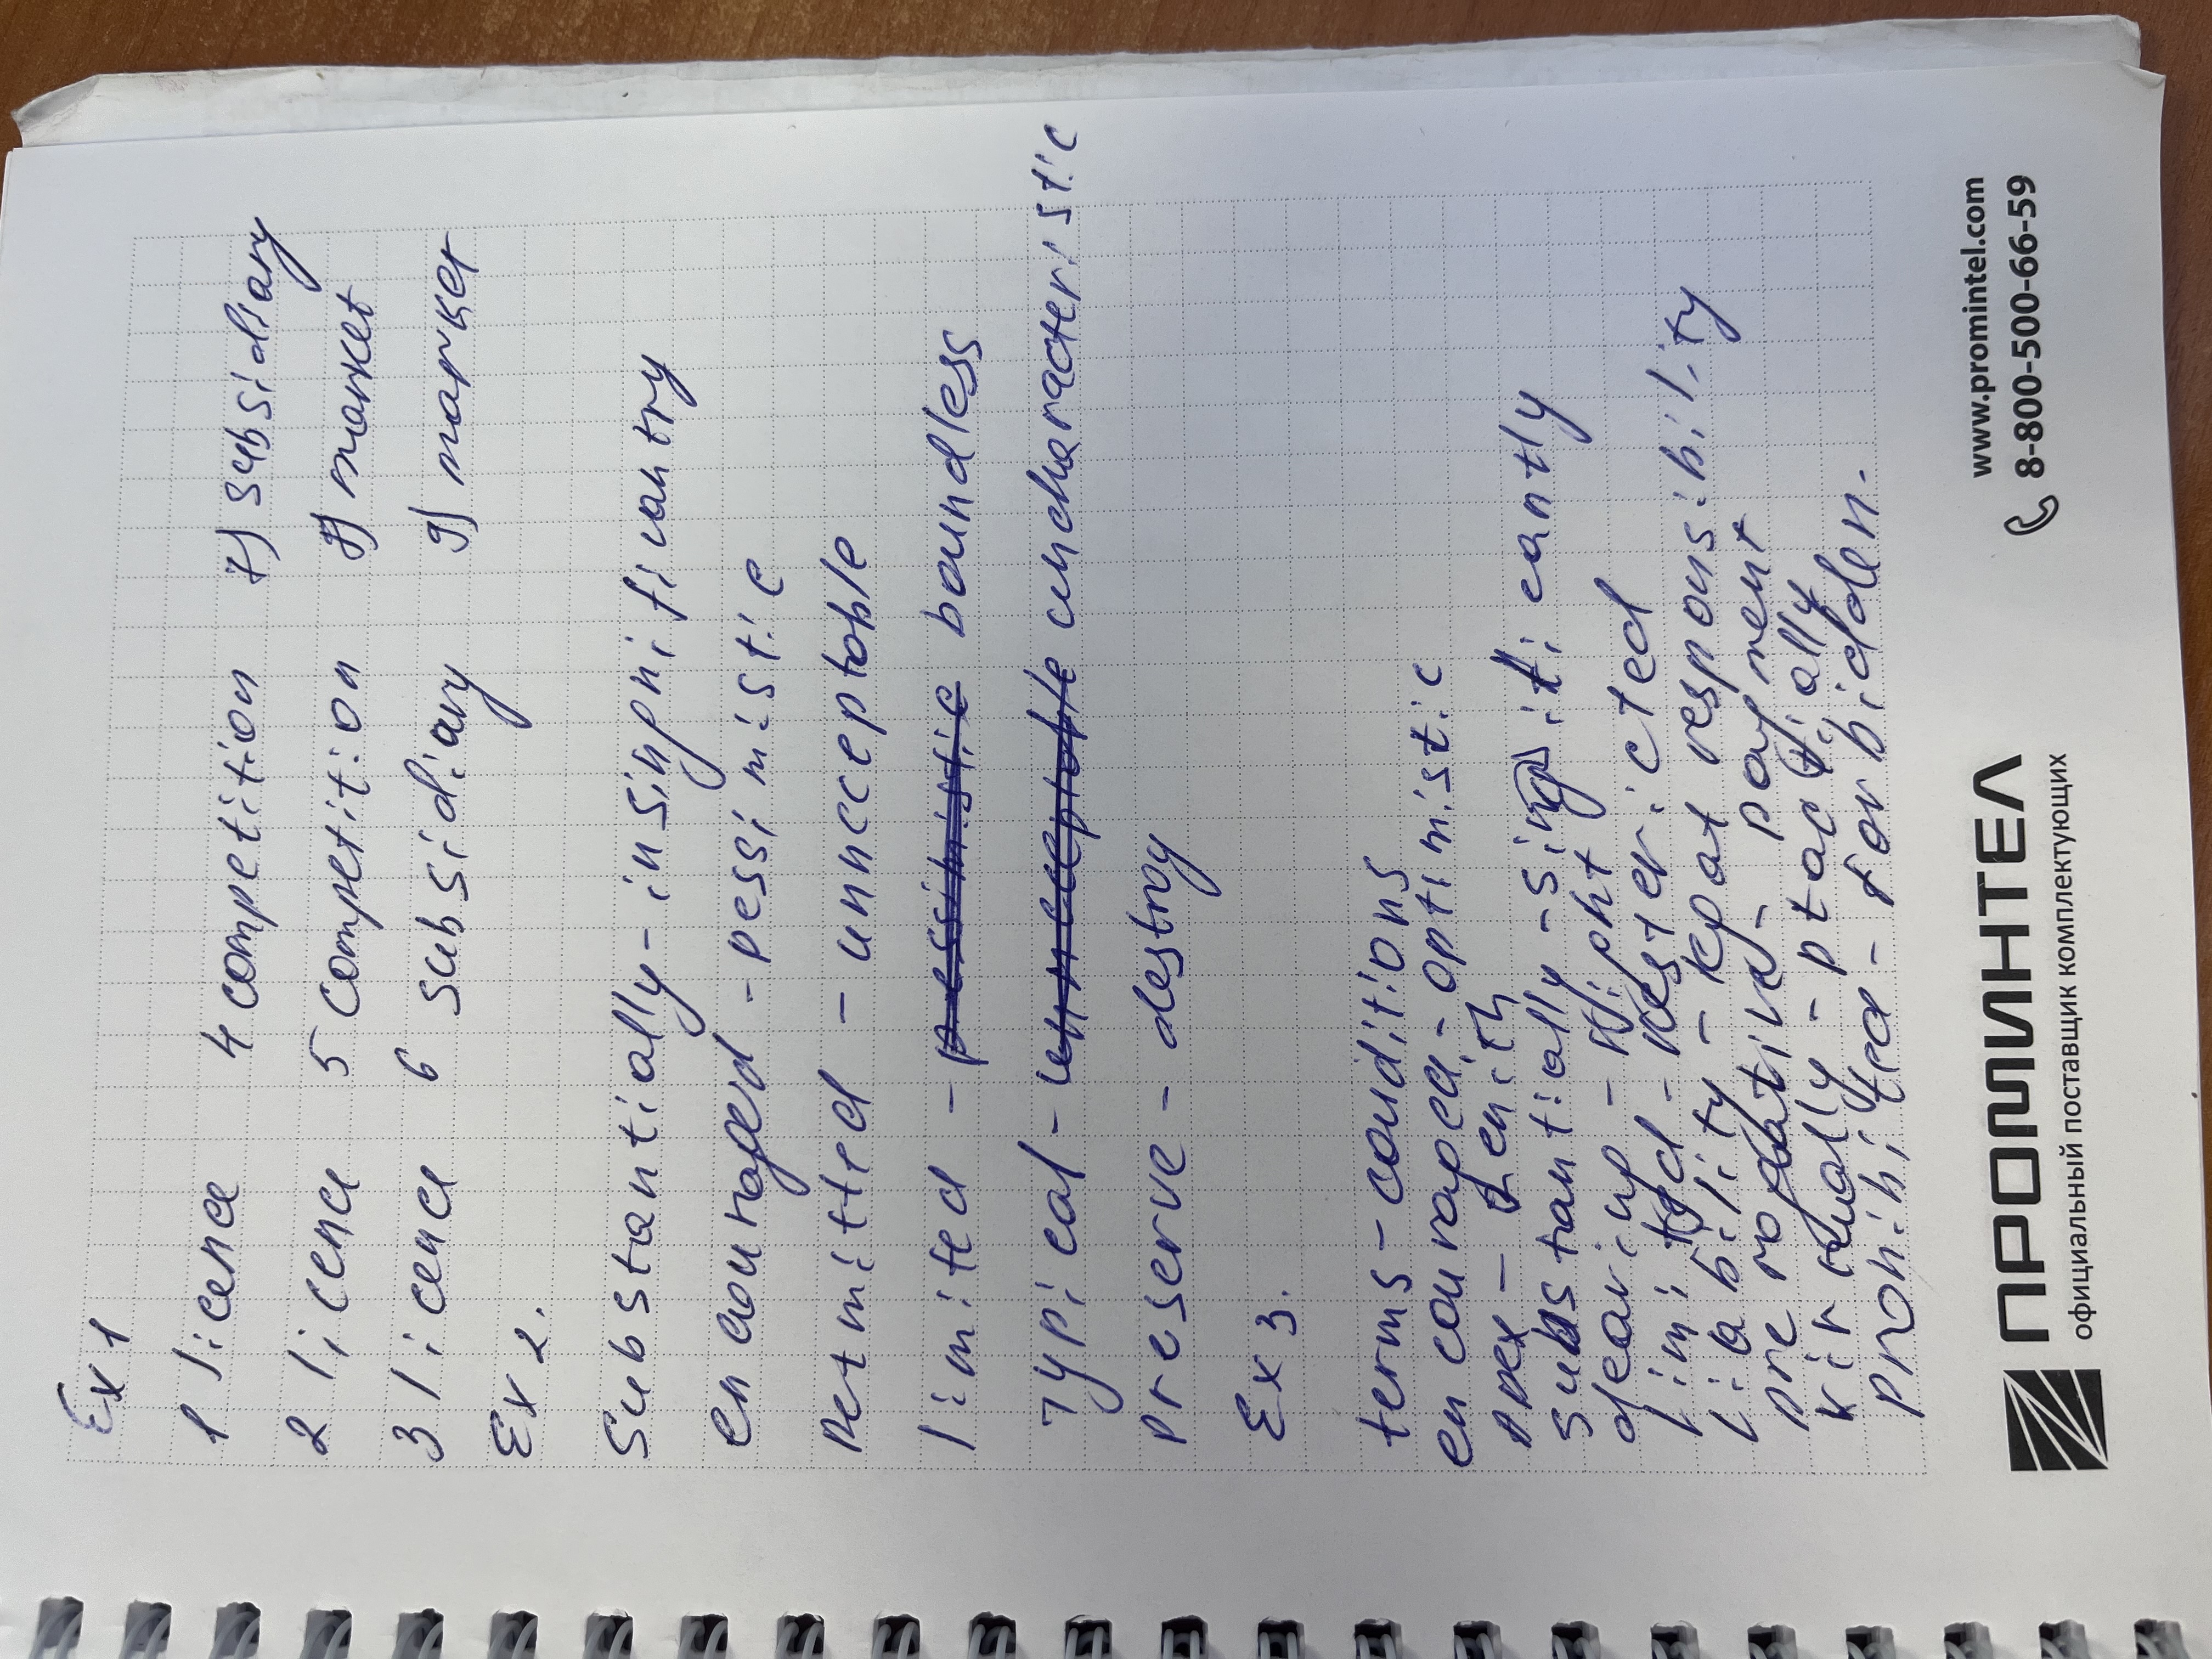 Ex 1
1 licence 4 competition 7) subsidiary
2 licence 5 competition 8) market
3 licence 6 subsidiary 9) market
Ex 2.
Substantially - insignificantry
encouraged - pessimistic
Permitted - unnceptable
limited - boundless
Typical - uncharacteristic
preserve - destroy
Ex 3.
terms - conditions
encouraged - optimistic
apex - zenith
substantially - singificantly
clearing
limited - restericted
liability - responsibility
prerogative - payment
virtually - ptactially
prohibited - forbidden.
ПРОМИНТЕЛ
официальный поставщик комплектующих
www.promintel.com
8-800-500-66-59